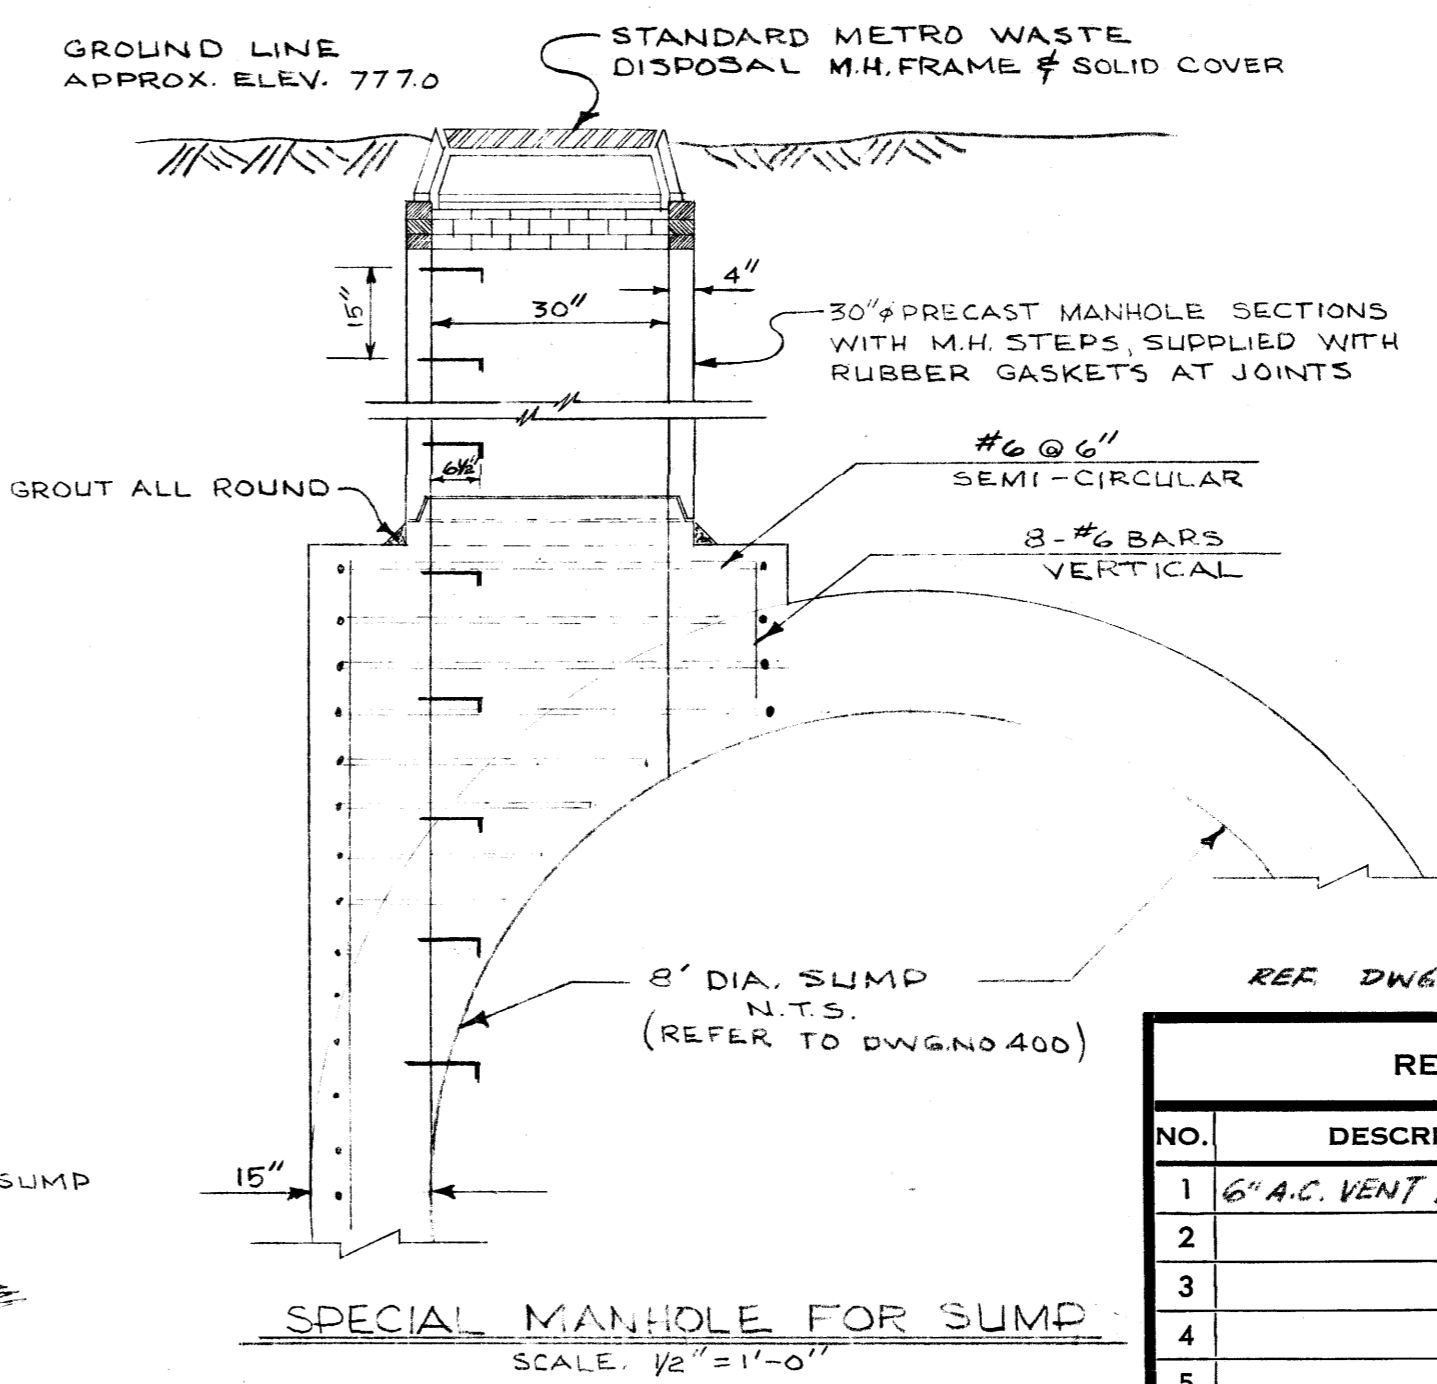 GROUND LINE
APPROX. ELEV. 777.0
STANDARD METRO WASTE
DISPOSAL M.H. FRAME & SOLID COVER
15"
30"
4"
30"φ PRECAST MANHOLE SECTIONS
WITH M.H. STEPS, SUPPLIED WITH
RUBBER GASKETS AT JOINTS
6½"
GROUT ALL ROUND
#6 @ 6"
SEMI-CIRCULAR
8-#6 BARS
VERTICAL
8' DIA. SUMP
N.T.S.
(REFER TO DWG.NO 400)
REF. DWG
SUMP
15"
RE
NO. DESCRI
1 6" A.C. VENT
2
3
4
5
SPECIAL MANHOLE FOR SUMP
SCALE. 1/2" = 1'-0"